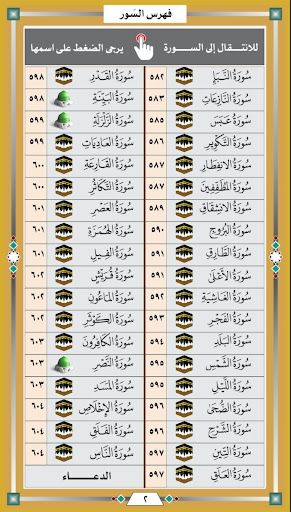 فهرس السّور
للانتـقـال إلى الســـورة يرجى الضغط على اسمها
سُورَةُ النَّبَإِ ٥٨٢
سُورَةُ النَّازِعَاتِ ٥٨٣
سُورَةُ عَبَسَ ٥٨٥
سُورَةُ التَّكْوِيرِ ٥٨٦
سُورَةُ الانفِطَارِ ٥٨٧
سُورَةُ المُطَفِّفِينَ ٥٨٧
سُورَةُ الانشِقَاقِ ٥٨٩
سُورَةُ البُرُوجِ ٥٩٠
سُورَةُ الطَّارِقِ ٥٩١
سُورَةُ الأَعْلَى ٥٩١
سُورَةُ الغَاشِيَةِ ٥٩٢
سُورَةُ الفَجْرِ ٥٩٣
سُورَةُ البَلَدِ ٥٩٤
سُورَةُ الشَّمْسِ ٥٩٥
سُورَةُ اللَّيْلِ ٥٩٥
سُورَةُ الضُّحَى ٥٩٦
سُورَةُ الشَّرْحِ ٥٩٦
سُورَةُ التِّينِ ٥٩٧
سُورَةُ العَلَقِ ٥٩٧
سُورَةُ القَدْرِ ٥٩٨
سُورَةُ البَيِّنَةِ ٥٩٨
سُورَةُ الزَّلْزَلَةِ ٥٩٩
سُورَةُ العَادِيَاتِ ٥٩٩
سُورَةُ القَارِعَةِ ٦٠٠
سُورَةُ التَّكَاثُرِ ٦٠٠
سُورَةُ العَصْرِ ٦٠١
سُورَةُ الهُمَزَةِ ٦٠١
سُورَةُ الفِيلِ ٦٠١
سُورَةُ قُرَيْشٍ ٦٠٢
سُورَةُ المَاعُونِ ٦٠٢
سُورَةُ الكَوْثَرِ ٦٠٢
سُورَةُ الكَافِرُونَ ٦٠٣
سُورَةُ النَّصْرِ ٦٠٣
سُورَةُ المَسَدِ ٦٠٣
سُورَةُ الإِخْلَاصِ ٦٠٤
سُورَةُ الفَلَقِ ٦٠٤
سُورَةُ النَّاسِ ٦٠٤
الدعـــاء
٢